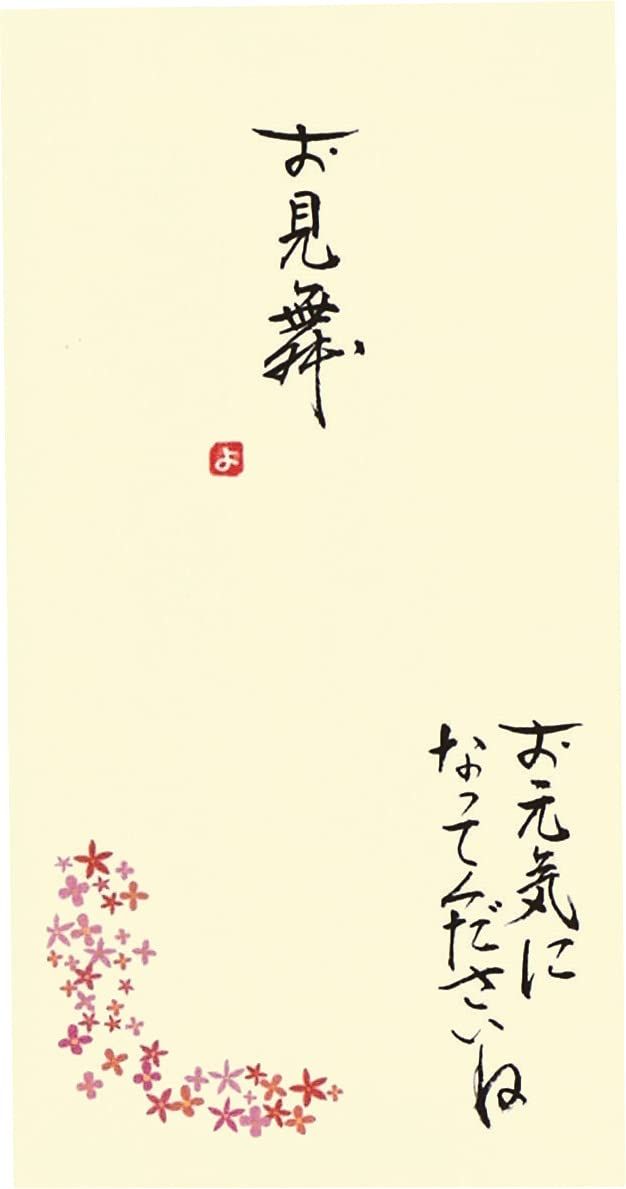 お見舞
よ
お元気に
なってくださいね